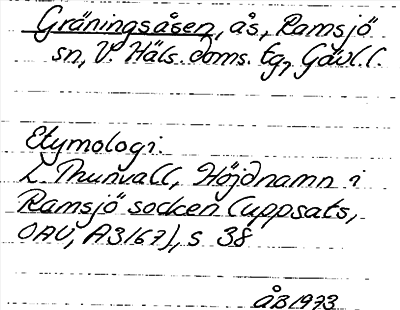 Gräningsåsen, ås, Ramsjö
sn, V. Häls. doms. tg, Gävl.l.
Etymologi:
L. Thunvall, Höjdnamn i
Ramsjö socken (uppsats,
OAU, A3167), s 38
ÅB 1973